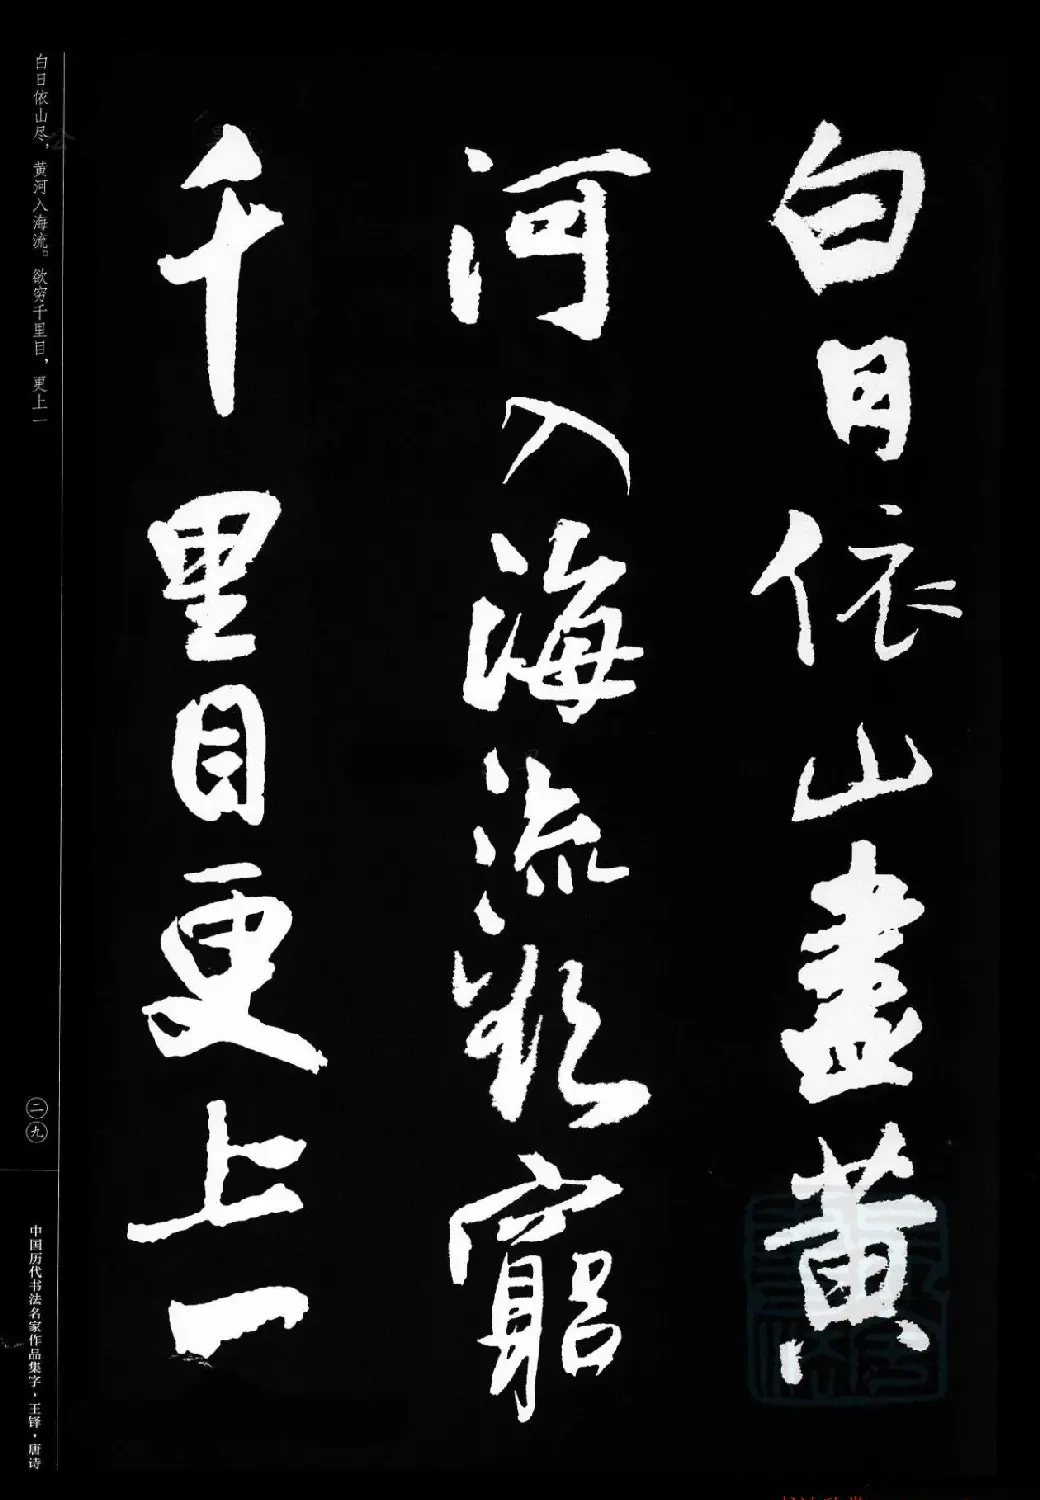 白日依山盡黄
河入海流欲窮
千里目更上一
白日依山尽，黄河入海流。欲穷千里目，更上一
二九
中国历代书法名家作品集字·王铎·唐诗